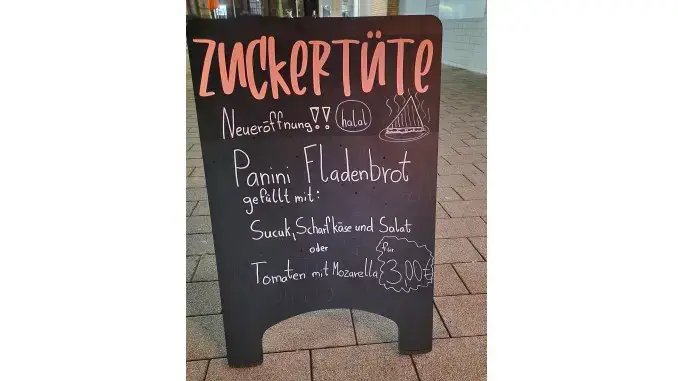 ZUCKERTÜTE
Neueröffnung!! halal
Panini Fladenbrot
gefällt mit:
Sucuk, Scharfkäse und Salat
oder
für
Tomaten mit Mozarella 3,00€